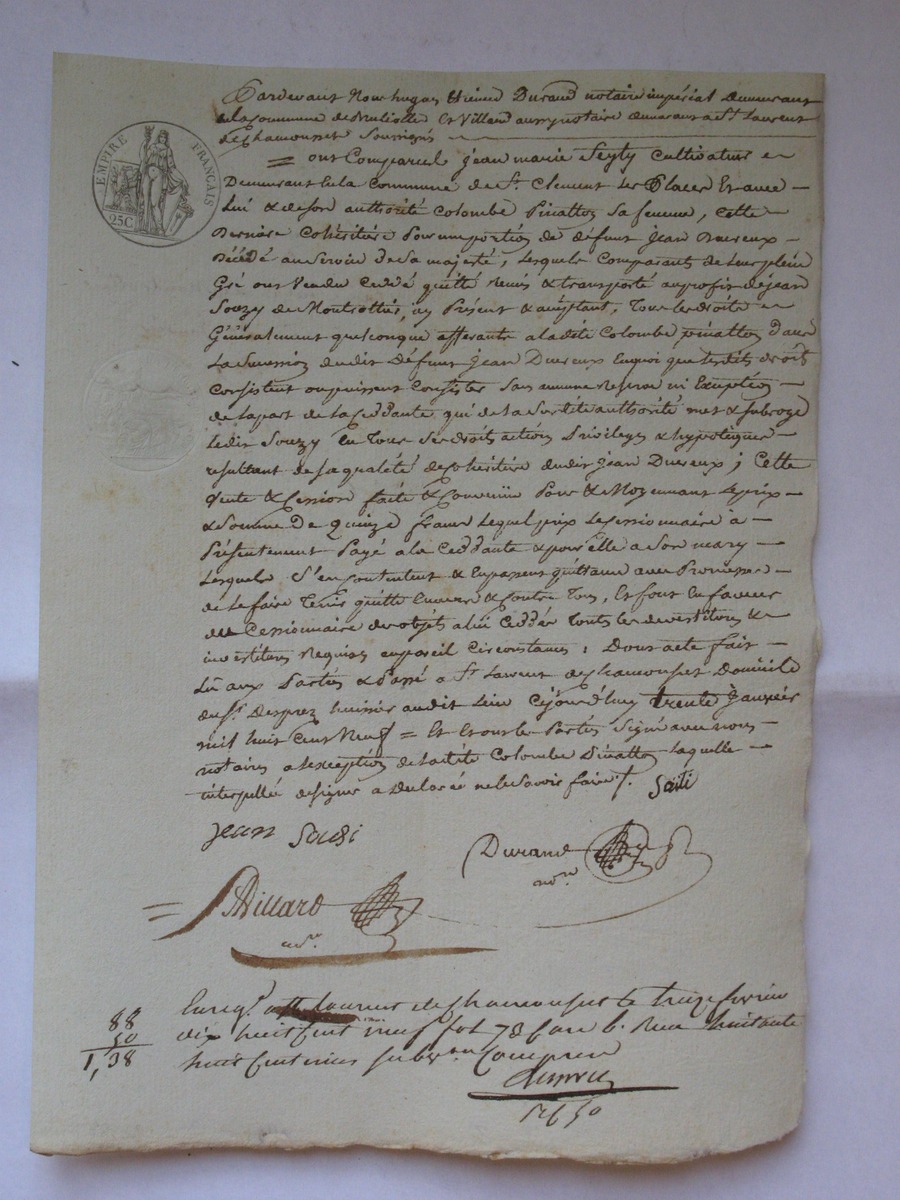 EMPIRE FRANÇAIS
25C
Pardevant Nous hugues Etienne Durand notaire impérial demeurant
en la commune de et Villard aussy notaire demeurant a St. Laurent
de Chamousset Soussignés
= ont Comparus jean marie Seyty Cultivateur
Demeurant en la Commune de St. Clement Les Places Et avec
Lui & de son authorité Colombe Pinatton Sa femme, Cette
Derniere Cohéritière Pour une portion de défunt Jean Ducreux
Décédé au Service de Sa majesté, Lesquels Comparants de Leur plein
Gré ont Vendu Ceddé quitté Remis & transporté au profit de jean
Souzy de Montrottier, icy Présent & acceptant, Tous les droits
Généralement quelconque afférants a ladite Colombe pinatton dans
La Succession dudit Défunt Jean Ducreux En quoi que Lesdits droits
Consistent ou puissent Consister Sans aucune Reserve ni Exception
de la part de la Ceddante qui de la Susdite authorité met & subroge
Ledit Souzy En Tous Ses droits actions Privileges & hypoteques
resultant de sa qualité de Cohéritière dudit Jean Ducreux ; Cette
Vente & Cession faite & Convenüe Pour & Moyennant Le prix
& Somme De Quinze francs Lequel prix Le Cessionnaire à
Présentement Payé a la Ceddante & pour Elle a Son mary
Lesquels S'en Contentent & En passent quittance avec Promesse
de Le faire Tenir quitte Envers & Contre Tous, Et font En faveur
du Cessionnaire des objets a lui Ceddés Touttes les devestitures &
investitures Requises En pareil Circonstances ; Dont acte fait
Lû aux Parties & Passé a St. Laurent de Chamousset Domicile
du Sr. Desprez huissier audit Lieu Cejourd'huy trente Janvier
mil huit Cent Neuf = Et Et ont les Parties Signé avec nous
notaires a lexception de Ladite Colombe Pinatton Laquelle
interpellée de signer a declaré ne le Savoir faire /. Saiti
jean Souzi
Durand
nore.
= Villard
nore.
Enregé. a St Laurent de Chamousset le treize fevrier
88 dix huit Cent neuf fol 78 Case 6. Recu huitante
50 huit Centimes subvon Comprise
1,38